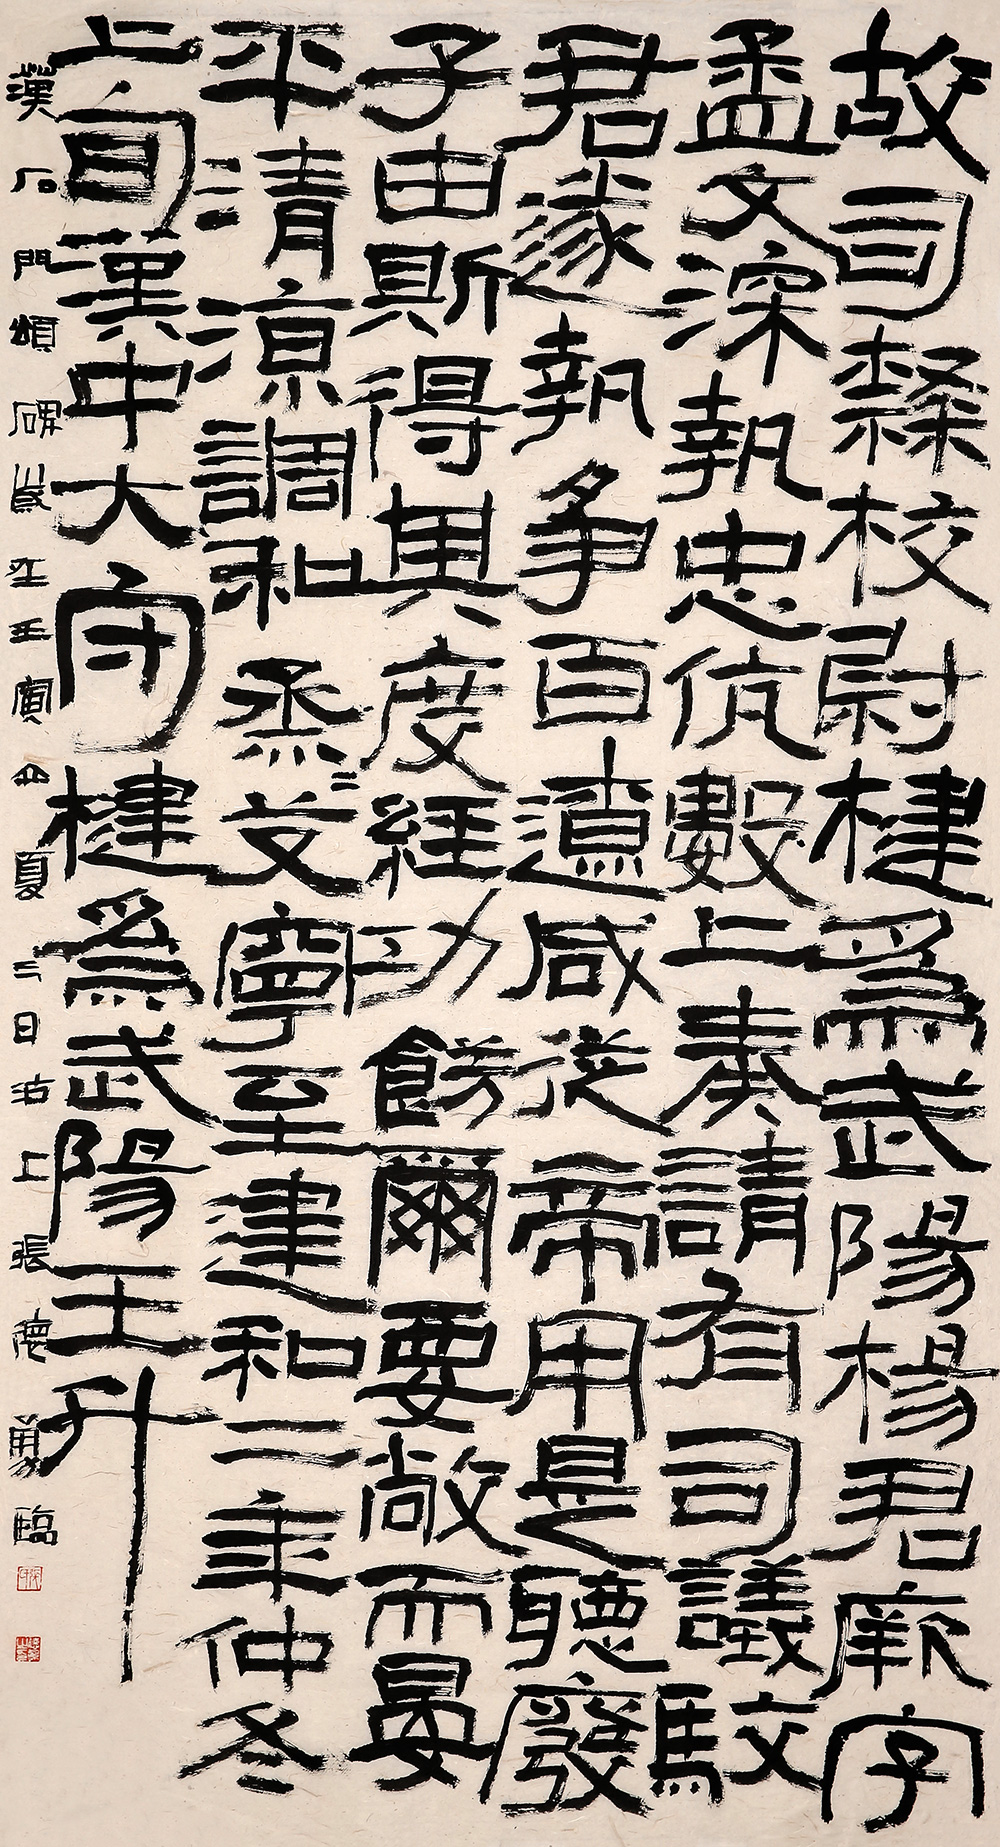 故司隸校尉楗爲武陽楊君厥字
孟文深執忠伉數上奏請有司議駮
君遂執爭百遼咸從帝用是聽廢
子由斯得其度經功飭爾要敞而晏
平清涼調和烝烝艾寧至建和二年仲冬
上旬漢中大守楗爲武陽王升
漢石門頌碑歲在壬寅立夏三日沽上張德勇臨